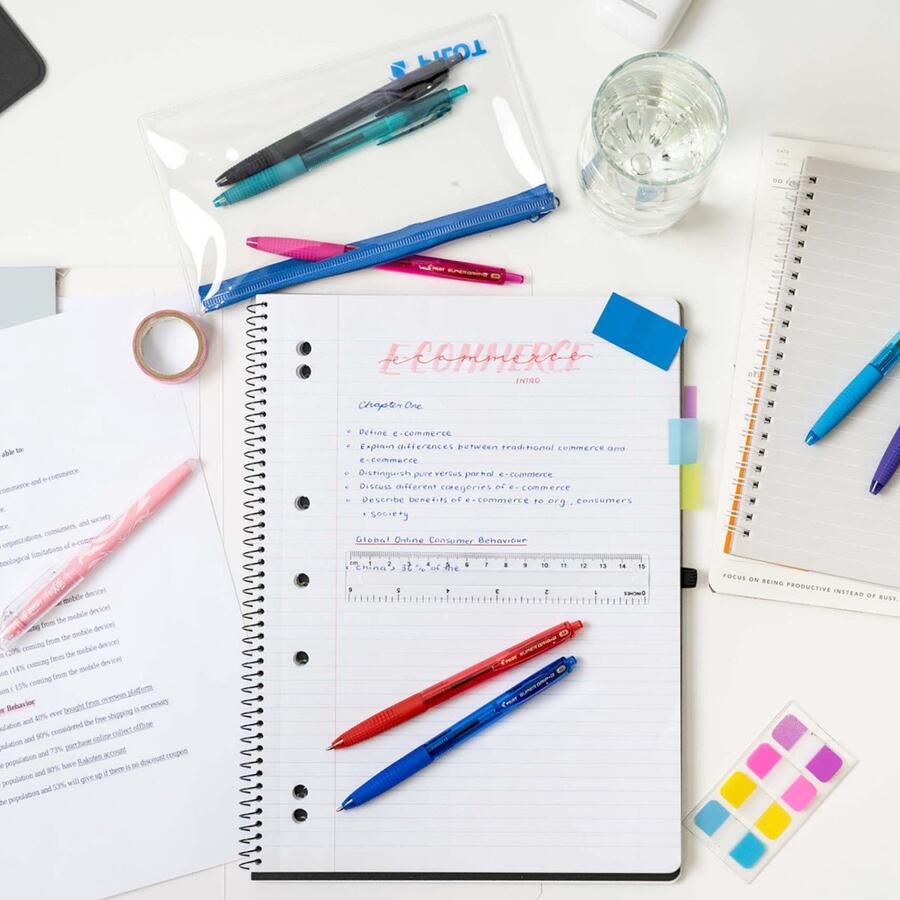 PILOT
PILOT SUPER GRIP·G
DATE
DO
E-COMMERCE
e-commerce
INTRO
Chapter One
◦ Define e-commerce
◦ Explain differences between traditional commerce and
e-commerce
◦ Distinguish pure versus partial e-commerce
◦ Discuss different categories of e-commerce
◦ Describe benefits of e-commerce to org., consumers
+ society
Global Online Consumer Behaviour
cm 1 2 3 4 5 6 7 8 9 10 11 12 13 14 15
China > 36% of the
6 5 4 3 2 1 INCHES
PILOT SUPER GRIP·G
PILOT SUPER GRIP·G
FOCUS ON BEING PRODUCTIVE INSTEAD OF BUSY.
able to:
commerce and e-commerce.
organizations, consumers, and society
nological limitations of e-comm
he mobile device)
om the mobile device)
n (20% coming from the mobile device)
on (14% coming from the mobile device)
on ( 15% coming from the mobile device)
er Behavior
pulation and 40% ever bought from overseas platform
opulation and 90% considered the free shipping is necessary
population and 73% purchase online collect offline
population and 80% have Rakuten account
the population and 53% will give up if there is no discount coupon